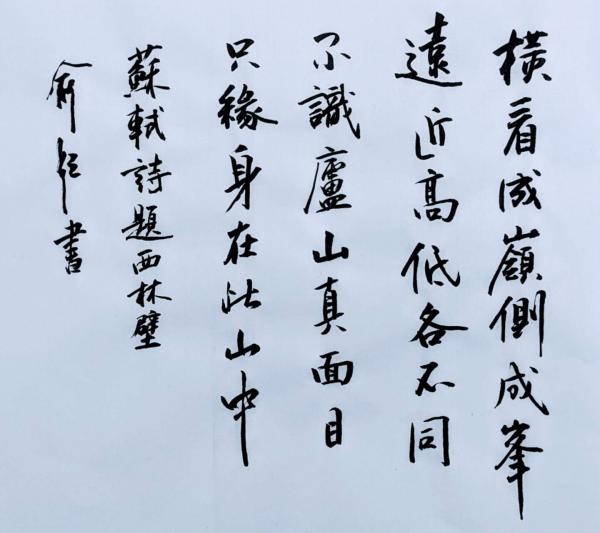 橫看成嶺側成峯
遠近高低各不同
不識廬山真面目
只緣身在此山中
蘇軾詩題西林壁
俞 書